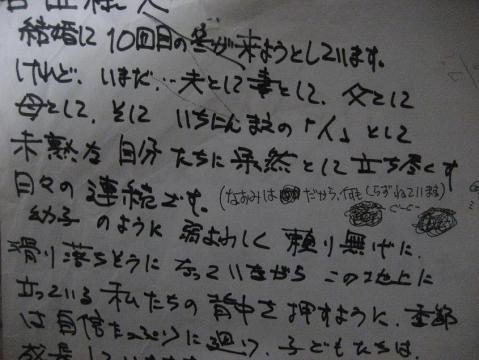 結婚に10回目の冬が来ようとしています。
けれど、いまだ…夫として妻として、父として
母として、そして いちにんまえの「人」として
未熟な 自分たちに呆然として立ち尽くす
日々の 連続です。(なおみは だから、何も しらずねています)
ぐーぐー
幼子のように 弱よわしく 頼り無げに、
滑り落ちそうに なっていながら この地上に
立っている 私たちの 背中を 押すように、季節
は自信たっぷりに廻り、子どもたちは、